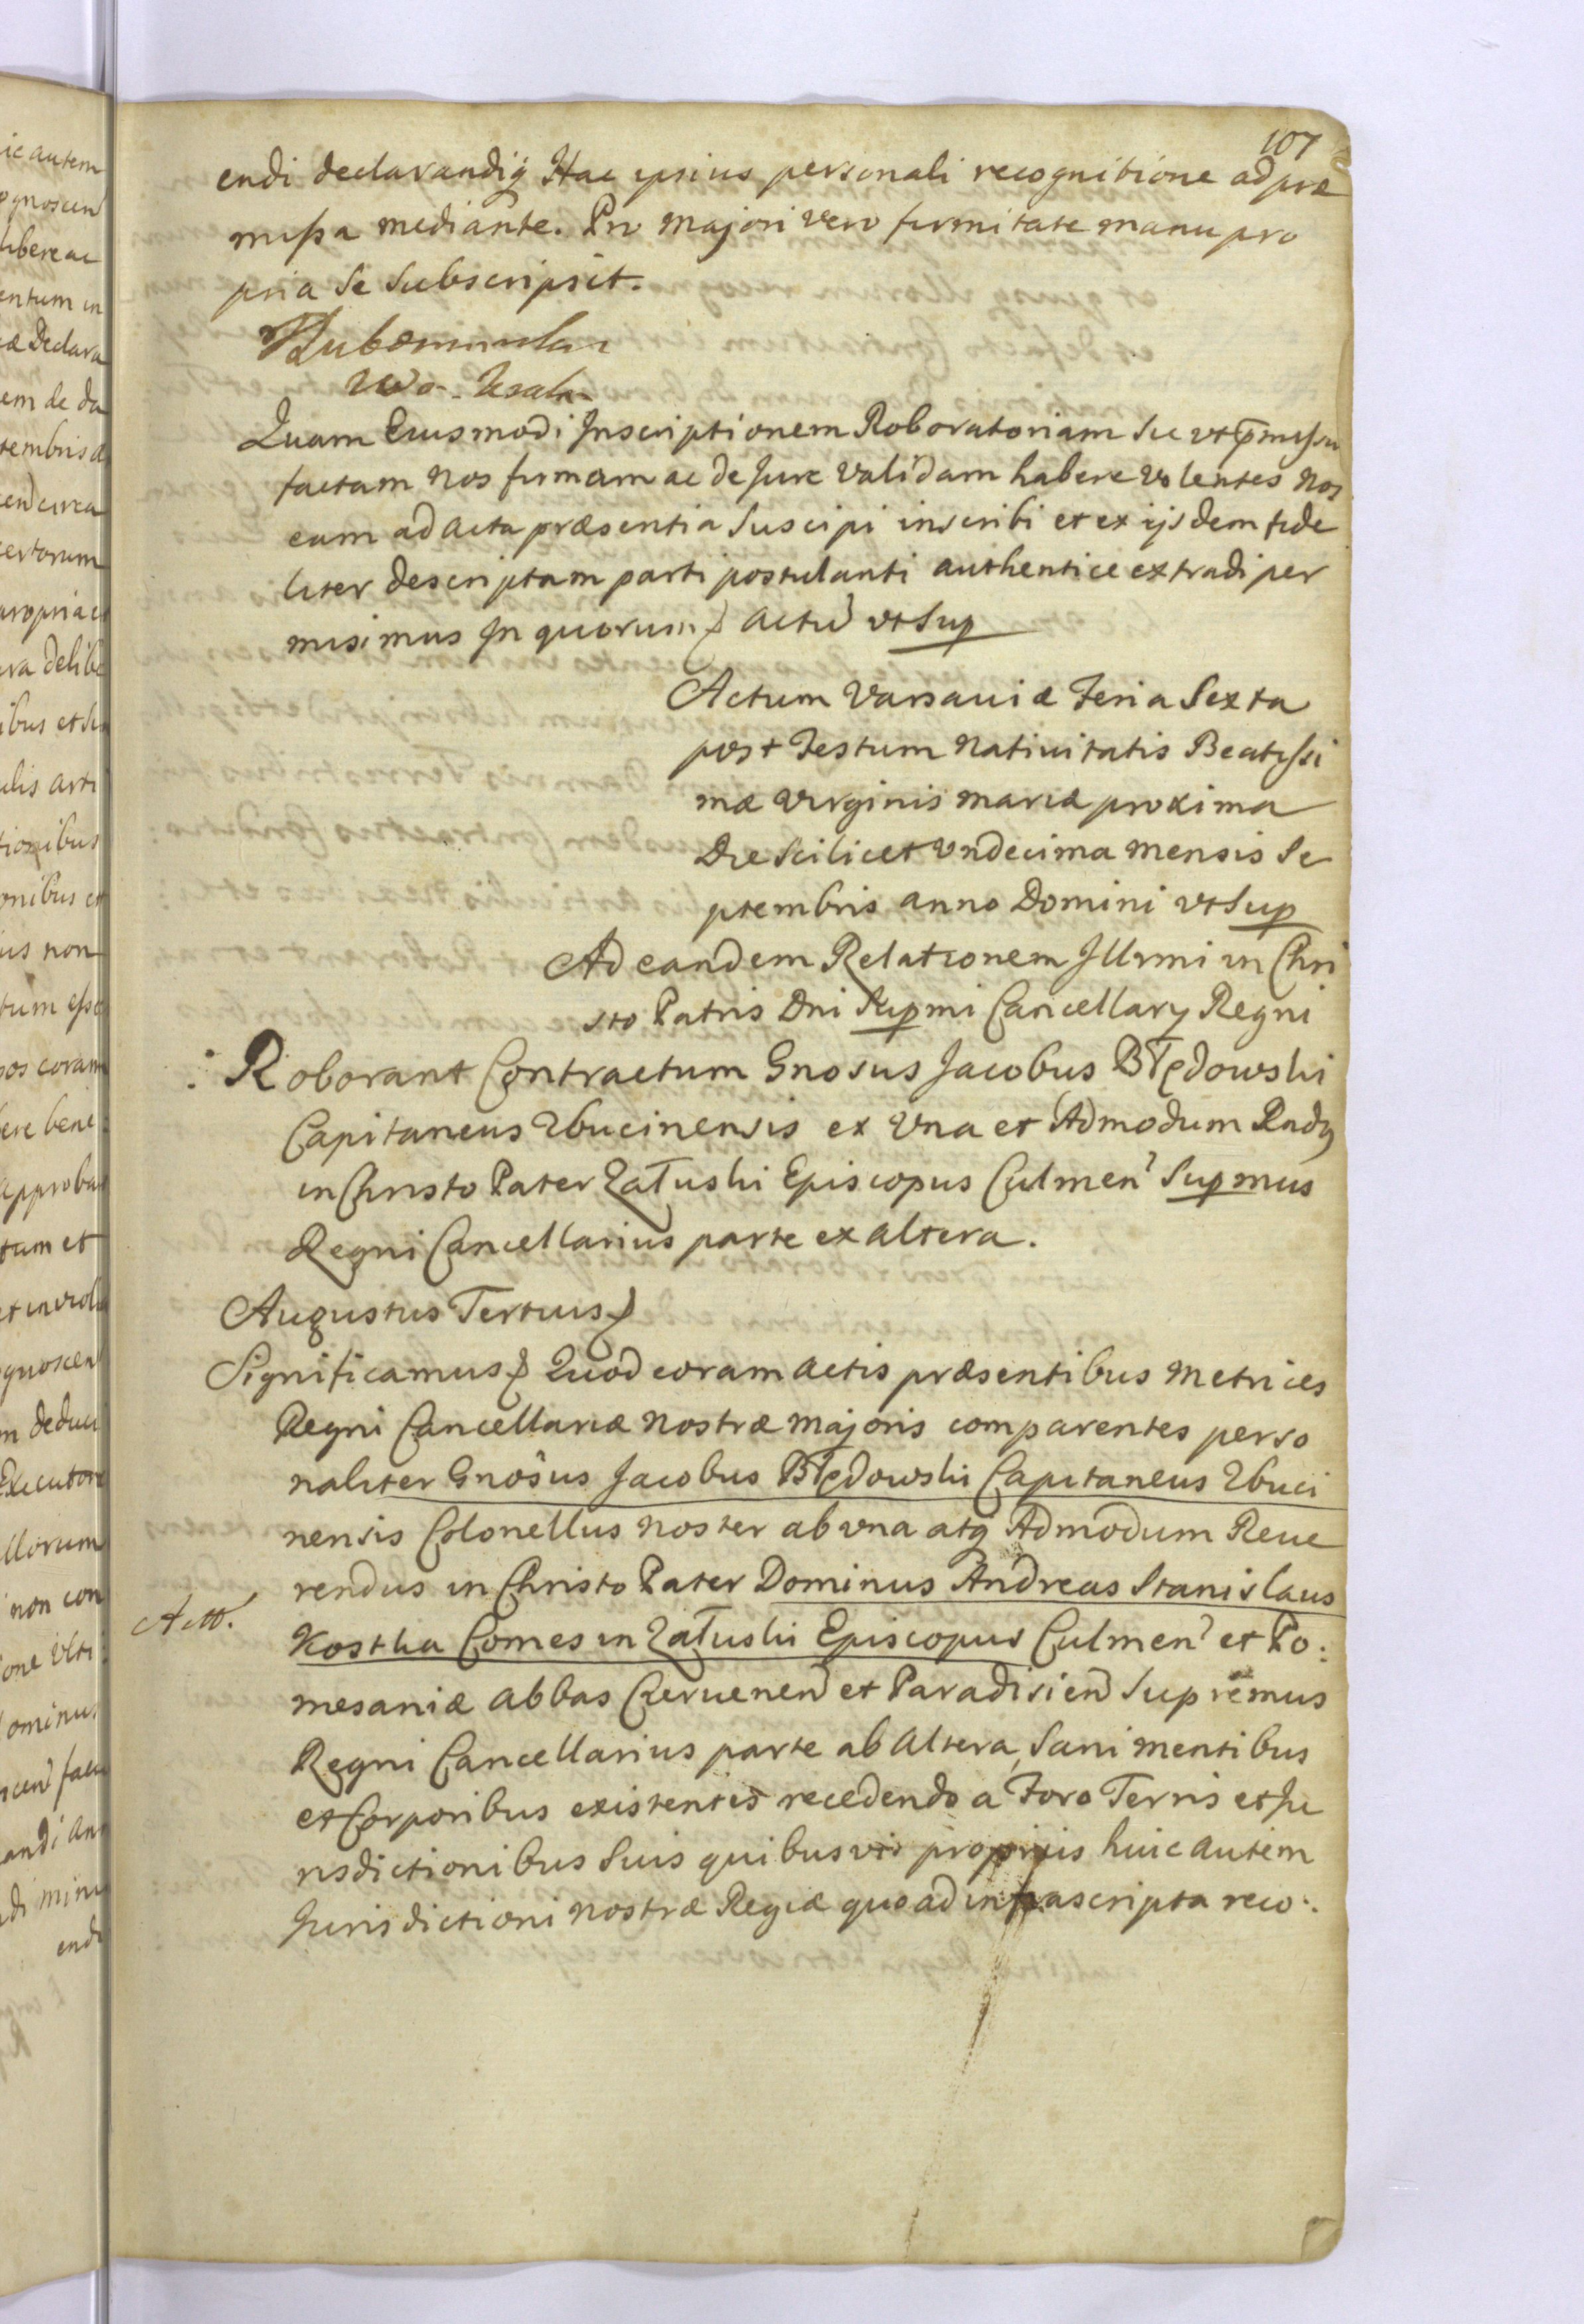 107
endi declarandiq Hac ipsius personali recognitione ad præ
missa mediante. Pro Majori vero firmitate manu pro
pria Se Subscripsit.
Quam Eiusmodi Inscriptionem Roboratoriam Sic vt p̄missu
factam Nos firmam ac de Jure Validam habere Volentes Nos
eam ad acta præsentia Suscipi inscribi et ex ijsdem fide
liter descriptam parti postulanti authentice extradi per
misimus In quorum actu vt Sup
Actum Varsauiæ Feria Sexta
post Festum Natiuitatis Beatissi
mæ Virginis Mariæ proxima
Die Scilicet Vndecima Mensis Se
ptembris anno Domini vt Sup
Ad eandem Relationem Illrmi in Chri
sto Patris Dni Supmi Cancellary Regni
Roborant Contractum Gnosus Jacobus Błędowski
Capitaneus Zbucinensis ex Vna et Admodum Rndus
in Christo Pater Załuski Episcopus Culmen Supmus
Regni Cancellarius parte ex altera.
Augustus Tertius
Significamus Quod coram actis præsentibus Metrices
Regni Cancellariæ Nostræ Majoris comparentes perso
naliter Gnosus Jacobus Błędowski Capitaneus Zbuci
nensis Colonellus Noster ab vna atq Admodum Reue
rendus in Christo Pater Dominus Andreas Stanislaus
Kostka Comes in Załuski Episcopus Culmen et Po:
mesaniæ Abbas Czeruenen et Paradisien Supremus
Regni Cancellarius parte ab Altera, Sani Mentibus
et Corporibus existentes recedendo a Foro Terris et Ju
risdictionibus Suis quibusvis proprijs huic autem
Jurisdictioni Nostræ Regiæ quo ad infrascripta reco: